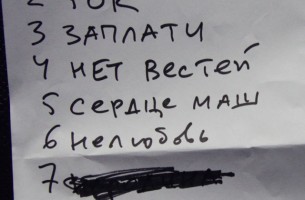 3 ЗАПЛАТИ
4 НЕТ ВЕСТЕЙ
5 СЕРДЦЕ МАШ
6 НЕЛЮБОВЬ
7